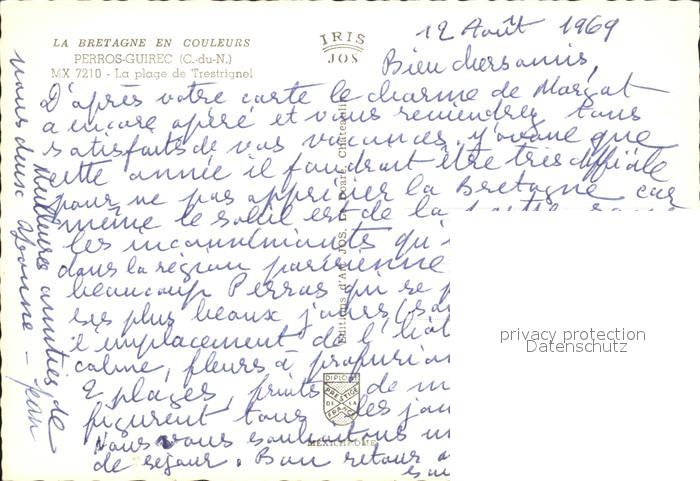 LA BRETAGNE EN COULEURS
PERROS-GUIREC (C.-du-N.)
MX 7210 - La plage de Trestrignel
IRIS
JOS
12 Août 1969
Bien chers amis,
D'après votre carte le charme de Morgat
a encore opéré et vous reviendrez tous
satisfaits de vos vacances. J'avoue que
cette année il faudrait être très difficile
pour ne pas apprécier la Bretagne car
même le soleil est de la
les inconvénients qu'
dans la région parisienne
beaucoup Perros qui se
ses plus beaux jours
emplacement de l'
calme, fleurs à profusion
2 plages, fruits de m
figurent tous les jou
Nous vous souhaitons un
de séjour. Bon retour
Meilleures amitiés de
nous deux Yvonne - Jean
Editions d'Art JOS Le Doaré, Châteaulin
DIPLOME
PRESTIGE
DE LA
FRANCE
MEXICHROME
privacy protection
Datenschutz